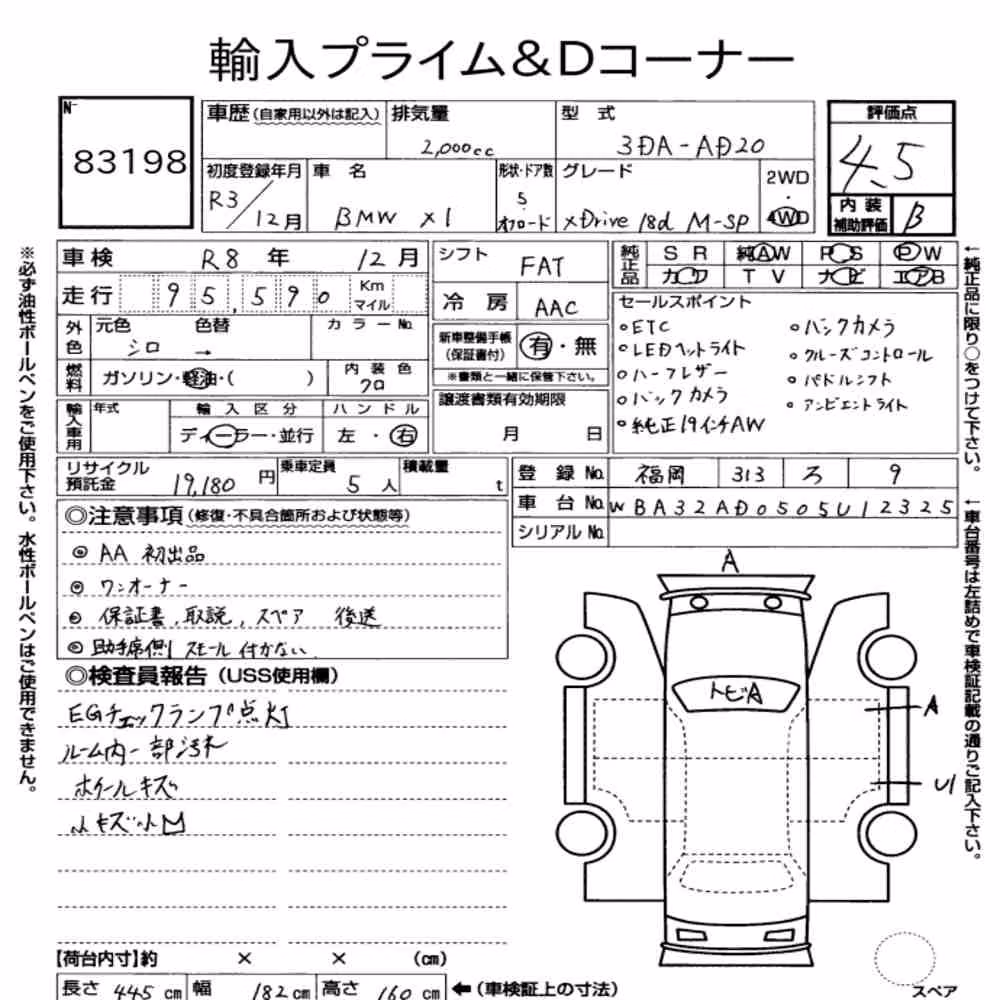 輸入プライム&Dコーナー
N-
83198
車歴(自家用以外は記入) 排気量 2,000cc 型式 3DA-AD20
評価点
4.5
内装補助評価 B
初度登録年月 R3/12月 車名 BMW X1 形状・ドア数 5 オフロード グレード xDrive 18d M-SP 2WD・4WD
車検 R8年 12月
走行 95,590 Km マイル
シフト FAT
冷房 AAC
純正品 SR 純AW PS PW
カワ TV ナビ エアB
外色 元色 シロ 色替 → カラーNo.
燃料 ガソリン・軽油・( ) 内装色 クロ
新車整備手帳(保証書付) 有・無
※書類と一緒に保管下さい。
輸入車用 年式 輸入区分 ディーラー・並行 ハンドル 左・右
譲渡書類有効期限 月 日
セールスポイント
○ETC
○LEDヘットライト
○ハーフレザー
○バックカメラ
○純正19インチAW
○バックカメラ
○クルーズコントロール
○パドルシフト
○アンビエントライト
リサイクル預託金 19,180円 乗車定員 5人 積載量 t
登録No. 福岡 313 ろ 9
車台No. WBA32AD0505U12325
シリアルNo.
◎注意事項(修復・不具合箇所および状態等)
◎ AA 初出品
◎ ワンオーナー
◎ 保証書、取説、スペア 後送
◎ 助手席側 スモール 付かない
◎検査員報告(USS使用欄)
EGチェックランプ点灯
ルーム内一部汚れ
ホイールキズ
小キズ小凹
A
トビA
A
U1
【荷台内寸】約 × × (cm)
長さ 445 cm 幅 182 cm 高さ 160 cm ←(車検証上の寸法)
スペア
※必ず油性ボールペンをご使用下さい。水性ボールペンはご使用できません。
←純正品に限り○をつけて下さい。
←車台番号は左詰めで車検証記載の通りご記入下さい。